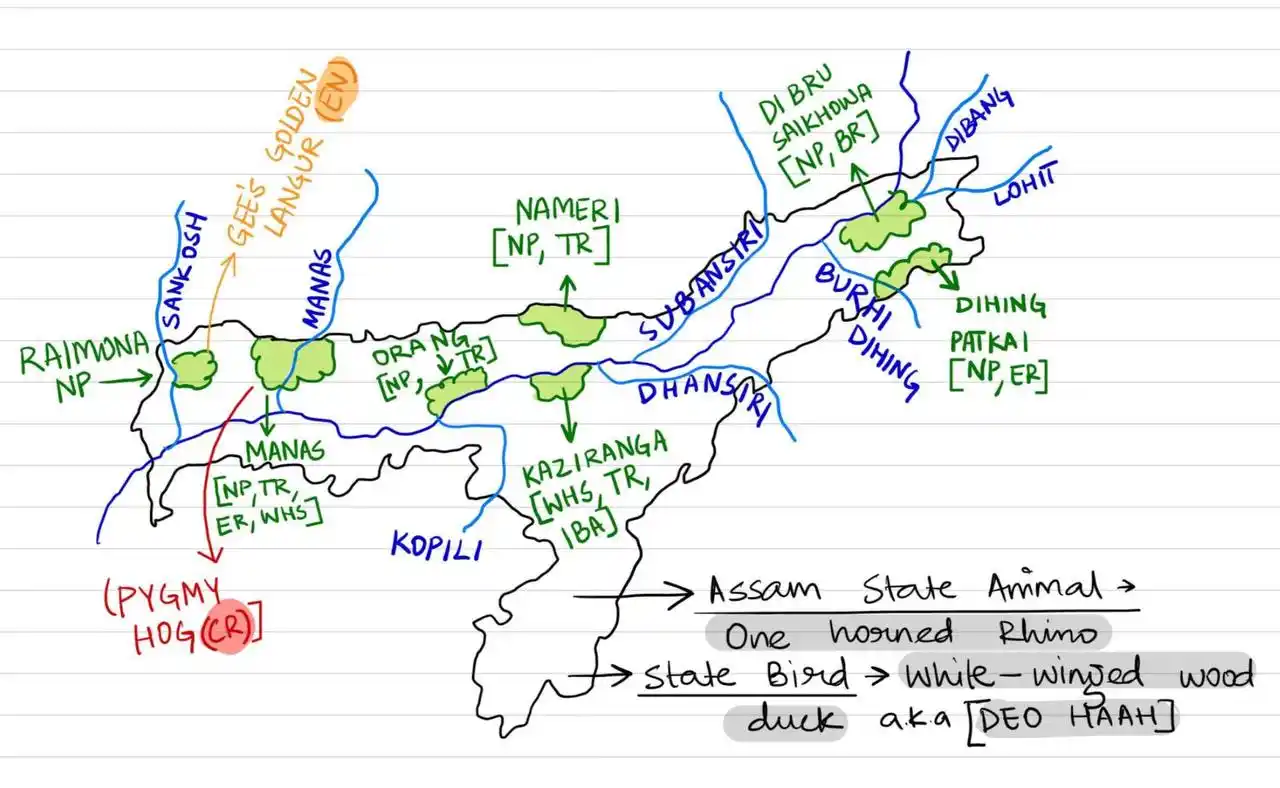 GEE'S GOLDEN
LANGUR (EN)
SANKOSH
MANAS
RAIMONA
NP
NAMERI
[NP, TR]
ORANG
[NP, TR]
SUBANSIRI
DIBRU
SAIKHOWA
[NP, BR]
DIBANG
LOHIT
BURHI
DIHING
DIHING
PATKAI
[NP, ER]
DHANSIRI
MANAS
[NP, TR,
ER, WHS]
KAZIRANGA
[WHS, TR,
IBA]
KOPILI
(PYGMY
HOG (CR)]
Assam State Animal →
One horned Rhino
State Bird → White-winged wood
duck a.k.a [DEO HAAH]